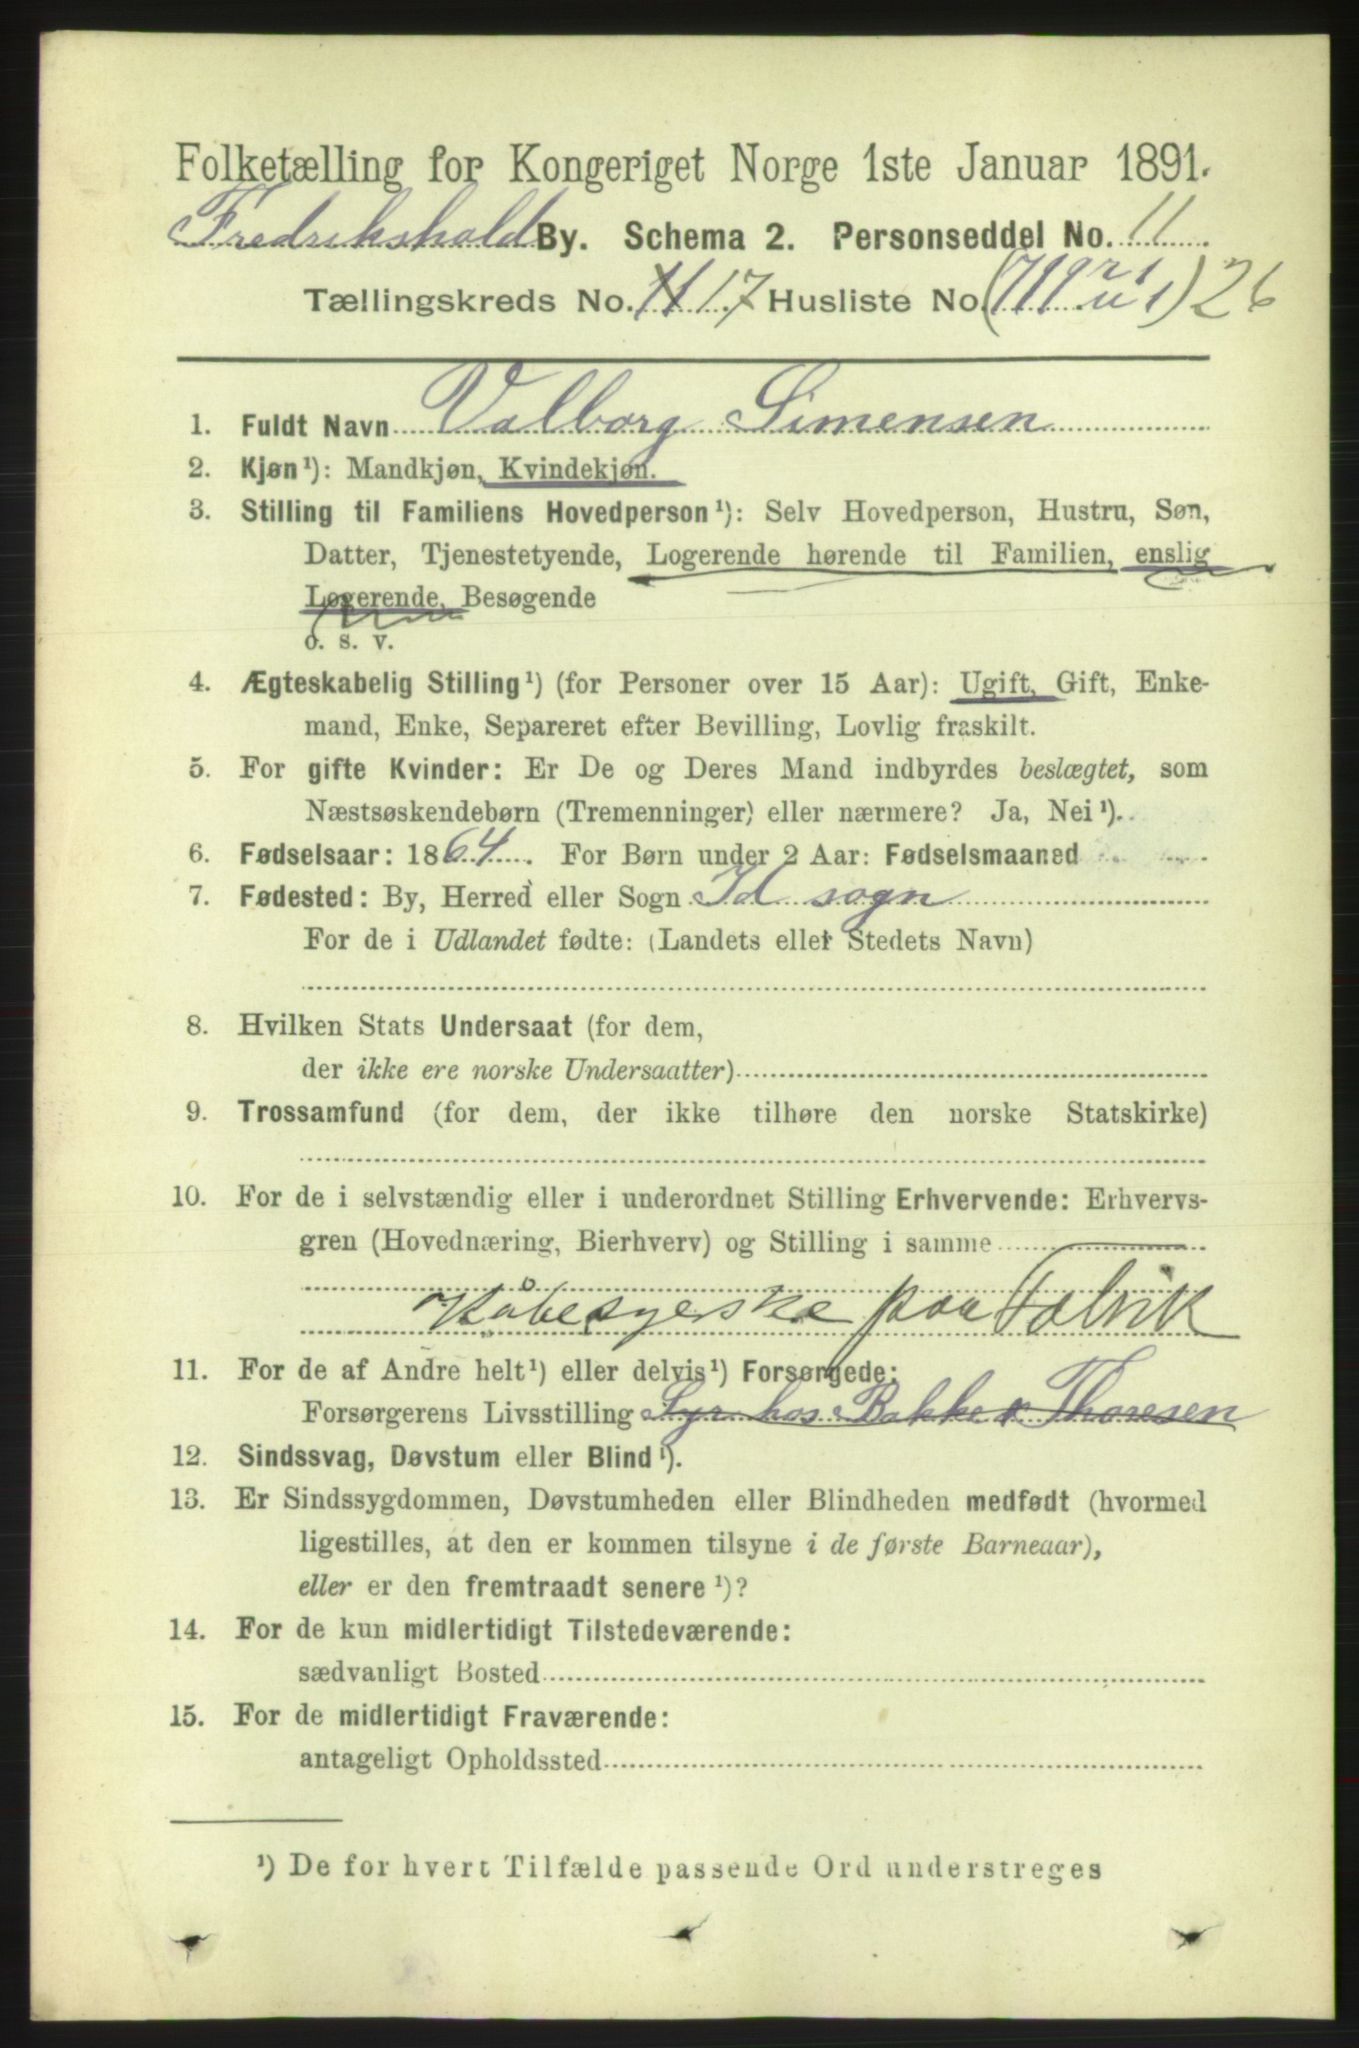 Folketælling for Kongeriget Norge 1ste Januar 1891.
Fredrikshald By. Schema 2. Personseddel No. 11
Tællingskreds No. 11 17 Husliste No. (719 ) 26
1. Fuldt Navn Valborg Simensen
2. Kjøn¹): Mandkjøn, Kvindekjøn.
3. Stilling til Familiens Hovedperson¹): Selv Hovedperson, Hustru, Søn,
Datter, Tjenestetyende, Logerende hørende til Familien, enslig
Logerende, Besøgende
o. s. v.
4. Ægteskabelig Stilling¹) (for Personer over 15 Aar): Ugift, Gift, Enke-
mand, Enke, Separeret efter Bevilling, Lovlig fraskilt.
5. For gifte Kvinder: Er De og Deres Mand indbyrdes beslægtet, som
Næstsøskendebørn (Tremenninger) eller nærmere? Ja, Nei¹).
6. Fødselsaar: 1864. For Børn under 2 Aar: Fødselsmaaned
7. Fødested: By, Herred eller Sogn Id sogn
For de i Udlandet fødte: (Landets eller Stedets Navn)
8. Hvilken Stats Undersaat (for dem,
der ikke ere norske Undersaatter)
9. Trossamfund (for dem, der ikke tilhøre den norske Statskirke)
10. For de i selvstændig eller i underordnet Stilling Erhvervende: Erhvervs-
gren (Hovednæring, Bierhverv) og Stilling i samme
Kåbesyerske paa Fabrik
11. For de af Andre helt¹) eller delvis¹) Forsørgede:
Forsørgerens Livsstilling Syr hos Bakke & Thoresen
12. Sindssvag, Døvstum eller Blind¹).
13. Er Sindssygdommen, Døvstumheden eller Blindheden medfødt (hvormed
ligestilles, at den er kommen tilsyne i de første Barneaar),
eller er den fremtraadt senere¹)?
14. For de kun midlertidigt Tilstedeværende:
sædvanligt Bosted
15. For de midlertidigt Fraværende:
antageligt Opholdssted
¹) De for hvert Tilfælde passende Ord understreges